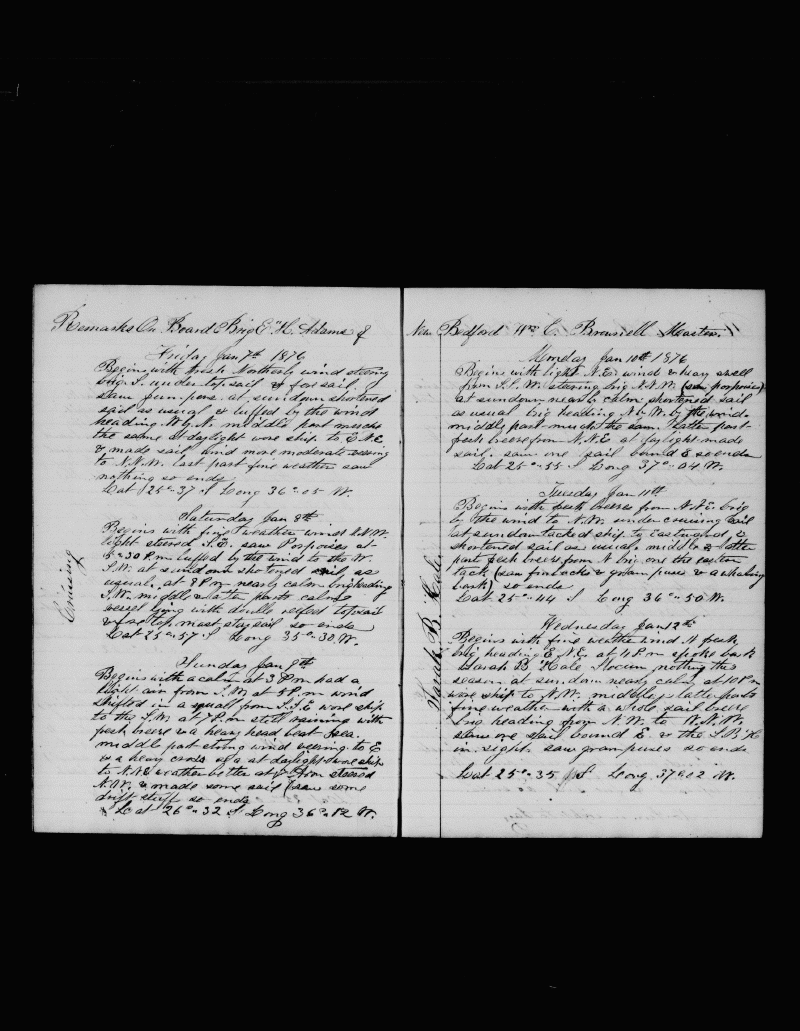 Remarks On Board Brig E. H. Adams of
Friday Jan 7th 1876
Begins with fresh Northerly wind steering
brig S. under top sail & foresail.
saw jumpers. at sundown shortened
sail as usual & luffed by the wind
heading W by N. middle part much
the same at daylight wore ship to E.N.E
& made sail wind more moderate
to N.N.W. last part fine weather saw
nothing so ends
Lat 25°-37 S Long 36°-05 W.
Saturday Jan 8th
Begins with fine weather wind N.N.W.
light steered S.E. saw Porpoises at
5-30 P.m luffed by the wind to the W.
S.W. at sundown shortened sail as
usual. at 8 P.m nearly calm brig heading
S.W. middle & latter parts calm
vessel lying with double reefed topsail
& fore top mast staysail so ends
Lat 25°-57 S Long 35°-30 W.
Cruising
Sunday Jan 9th
Begins with a calm at 3 P.m had a
light air from S.W. at 4 P.m wind
shifted in a squall from S.S.E wore ship
to the S.W. at 7 P.m still raining with
fresh breeze & a heavy head beat sea.
middle part strong wind veering to E
& a heavy cross sea at daylight wore ship
to N.N.E weather better at steered
N.W. & made some sail (saw some
drift stuff so ends
Lat 26°-32 S Long 36°-12 W.
New Bedford Wm C. Brownell Master.
Monday Jan 10th 1876
Begins with light N.E. wind & heavy swell
from S.S.W. steering brig N.N.W. (saw porpoises)
at sundown nearly calm shortened sail
as usual brig heading N by W. by the wind.
middle part much the same. Latter part
fresh breeze from N.N.E at daylight made
sail. saw one sail bound E so ends
Lat 25°-55 S Long 37°-04 W.
Tuesday Jan 11th
Begins with fresh breeze from N.N.E. brig
by the wind to N.W. under cruising sail
at sundown tacked ship to Eastward, &
shortened sail as usual. middle & latter
part fresh breeze from N brig on the eastern
tack (saw finbacks & grampuses & a whaling
bark) so ends
Lat 25°-44 S Long 36°-50 W.
Wednesday Jan 12th
Begins with fine weather wind N fresh
brig heading E.N.E. at 4 P.m spoke bark
Sarah B Hale Slocum nothing this
season at sundown nearly calm, at 10 P.m
wore ship to N.W. middle & latter parts
fine weather with a whole sail breeze
brig heading from N.W. to W.N.W.
saw one sail bound E & the S B H
in sight. saw grampuses so ends
Lat 25°-35 S Long. 37°-02 W.
Sarah B. Hale.